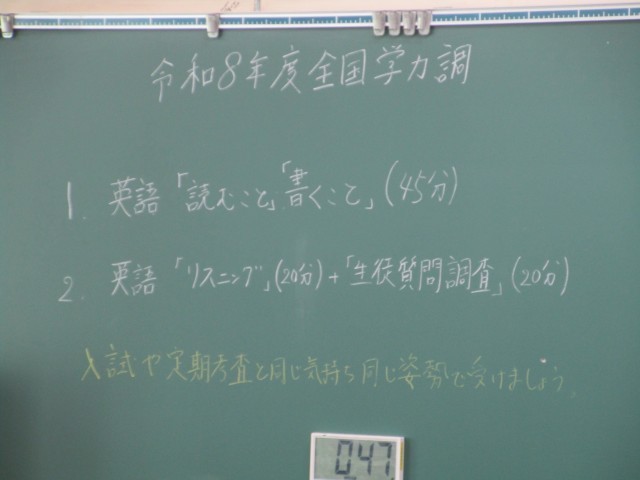 令和8年度全国学力調
1. 英語「読むこと」「書くこと」(45分)
2. 英語「リスニング」(20分)+「生徒質問調査」(20分)
入試や定期考査と同じ気持ち同じ姿勢で受けましょう。
047